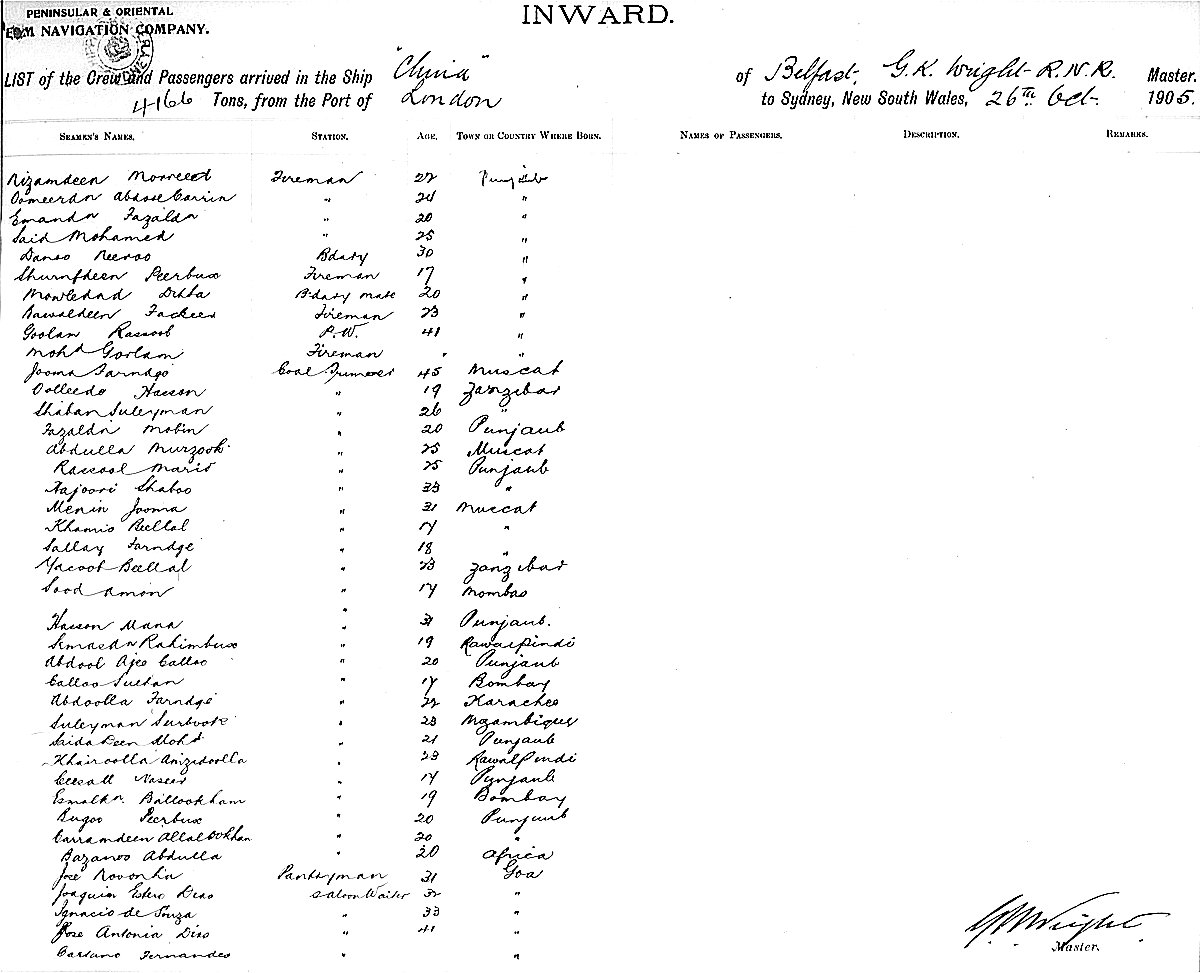 PENINSULAR & ORIENTAL
NAVIGATION COMPANY.
INWARD.
LIST of the Crew and Passengers arrived in the Ship "China" of Belfast, G. K. Wright R.N.R. Master.
4166 Tons, from the Port of London to Sydney, New South Wales, 26th Oct. 1905.
SEAMEN'S NAMES. STATION. AGE. TOWN OR COUNTRY WHERE BORN. NAMES OF PASSENGERS. DESCRIPTION. REMARKS.
Nizamdeen Fireman 22 Punjab
" 24 "
Emanda Fazalda " 20 "
Said Mohamed " 25 "
Bdary 30 "
Shurnfdeen Peerbux Fireman 17 "
Mowledad Ditta Bdary mate 20 "
Fireman 23 "
Goolam Rassool P.W. 41 "
Mohd Goolam Fireman " "
Jooma Farndge Coal Trimmer 45 Muscat
Hasson " 19 Zanzibar
Shaban Suleyman " 26 "
Fazalda Mobin " 20 Punjaub
Abdulla Murzook " 25 Muscat
Rassool " 25 Punjaub
Shaboo " 33 "
Menin Jooma " 31 Muscat
Khamis Bellal " 17 "
Sallay Farndge " 18 "
Yacoot Bellal " 23 Zanzibar
Sood Amon " 17 Mombas
"
Hasson Mana 31 Punjaub.
Rahimbux " 19 Rawalpindi
Abdool Ajee Calloo " 20 Punjaub
Calloo Sultan " 17 Bombay
Abdoolla Farndge " 22 Karachee
Suleyman Surbook " 23 Mozambique
Saida Deen Mohd " 21 Punjaub
Khairoolla Anizdoolla " 23 Rawalpindi
Nasser " 17 Punjaub
Ballookham " 19 Bombay
Bugoo Peerbux " 20 Punjaub
Carramdeen Allalookhan " 20 "
Bazanoo Abdulla " 20 Africa
Jose Noronha Pantryman 31 Goa
Joaquim Dias Saloon Waiter 32 "
Ignacio de Souza " 33 "
Jose Antonia Dias " 41 "
Caetano Fernandes " "
G K Wright
Master.